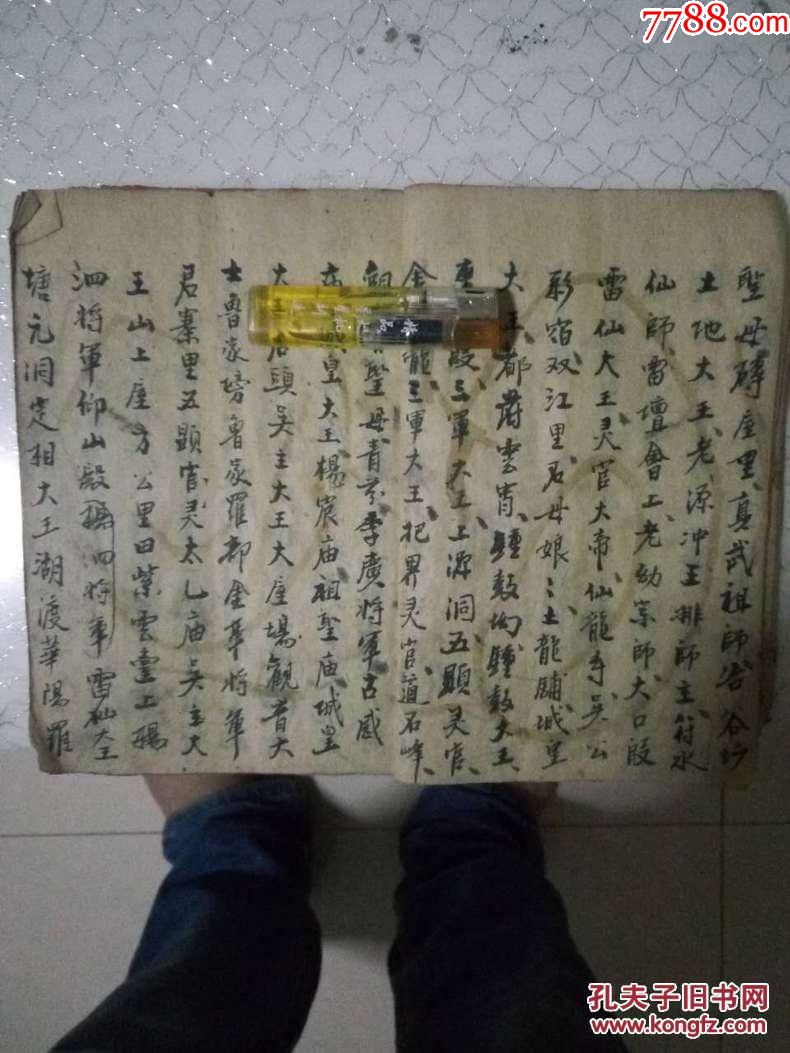 7788.com
聖母磚座里真武祖師
土地大王老源冲王排師主符水
仙師雷壇會上老幼宗師大口殿
雷仙大王灵官大帝仙龍寺吳公
彩宿双江里君母娘〻土龍鋪城皇
大王都蔚雲霄鍾鼓坳鍾鼓大王
殿三軍大王上源洞五顯灵官
金龍三軍大王把界灵官道石峰
聖母青茶李廣將軍古感
城皇大王楊宸庙祖聖庙城皇
大王石頭吳主大王大座場觀音大
士魯家塝魯家羅都金軍將軍
君寨里五顯官灵太乚庙吳主大
王山上座方公里田紫雲臺上楊
泗將軍仰山殿楊泗將軍雷仙大王
塘元洞定相大王湖渡華陽羅
孔夫子旧书网
www.kongfz.com